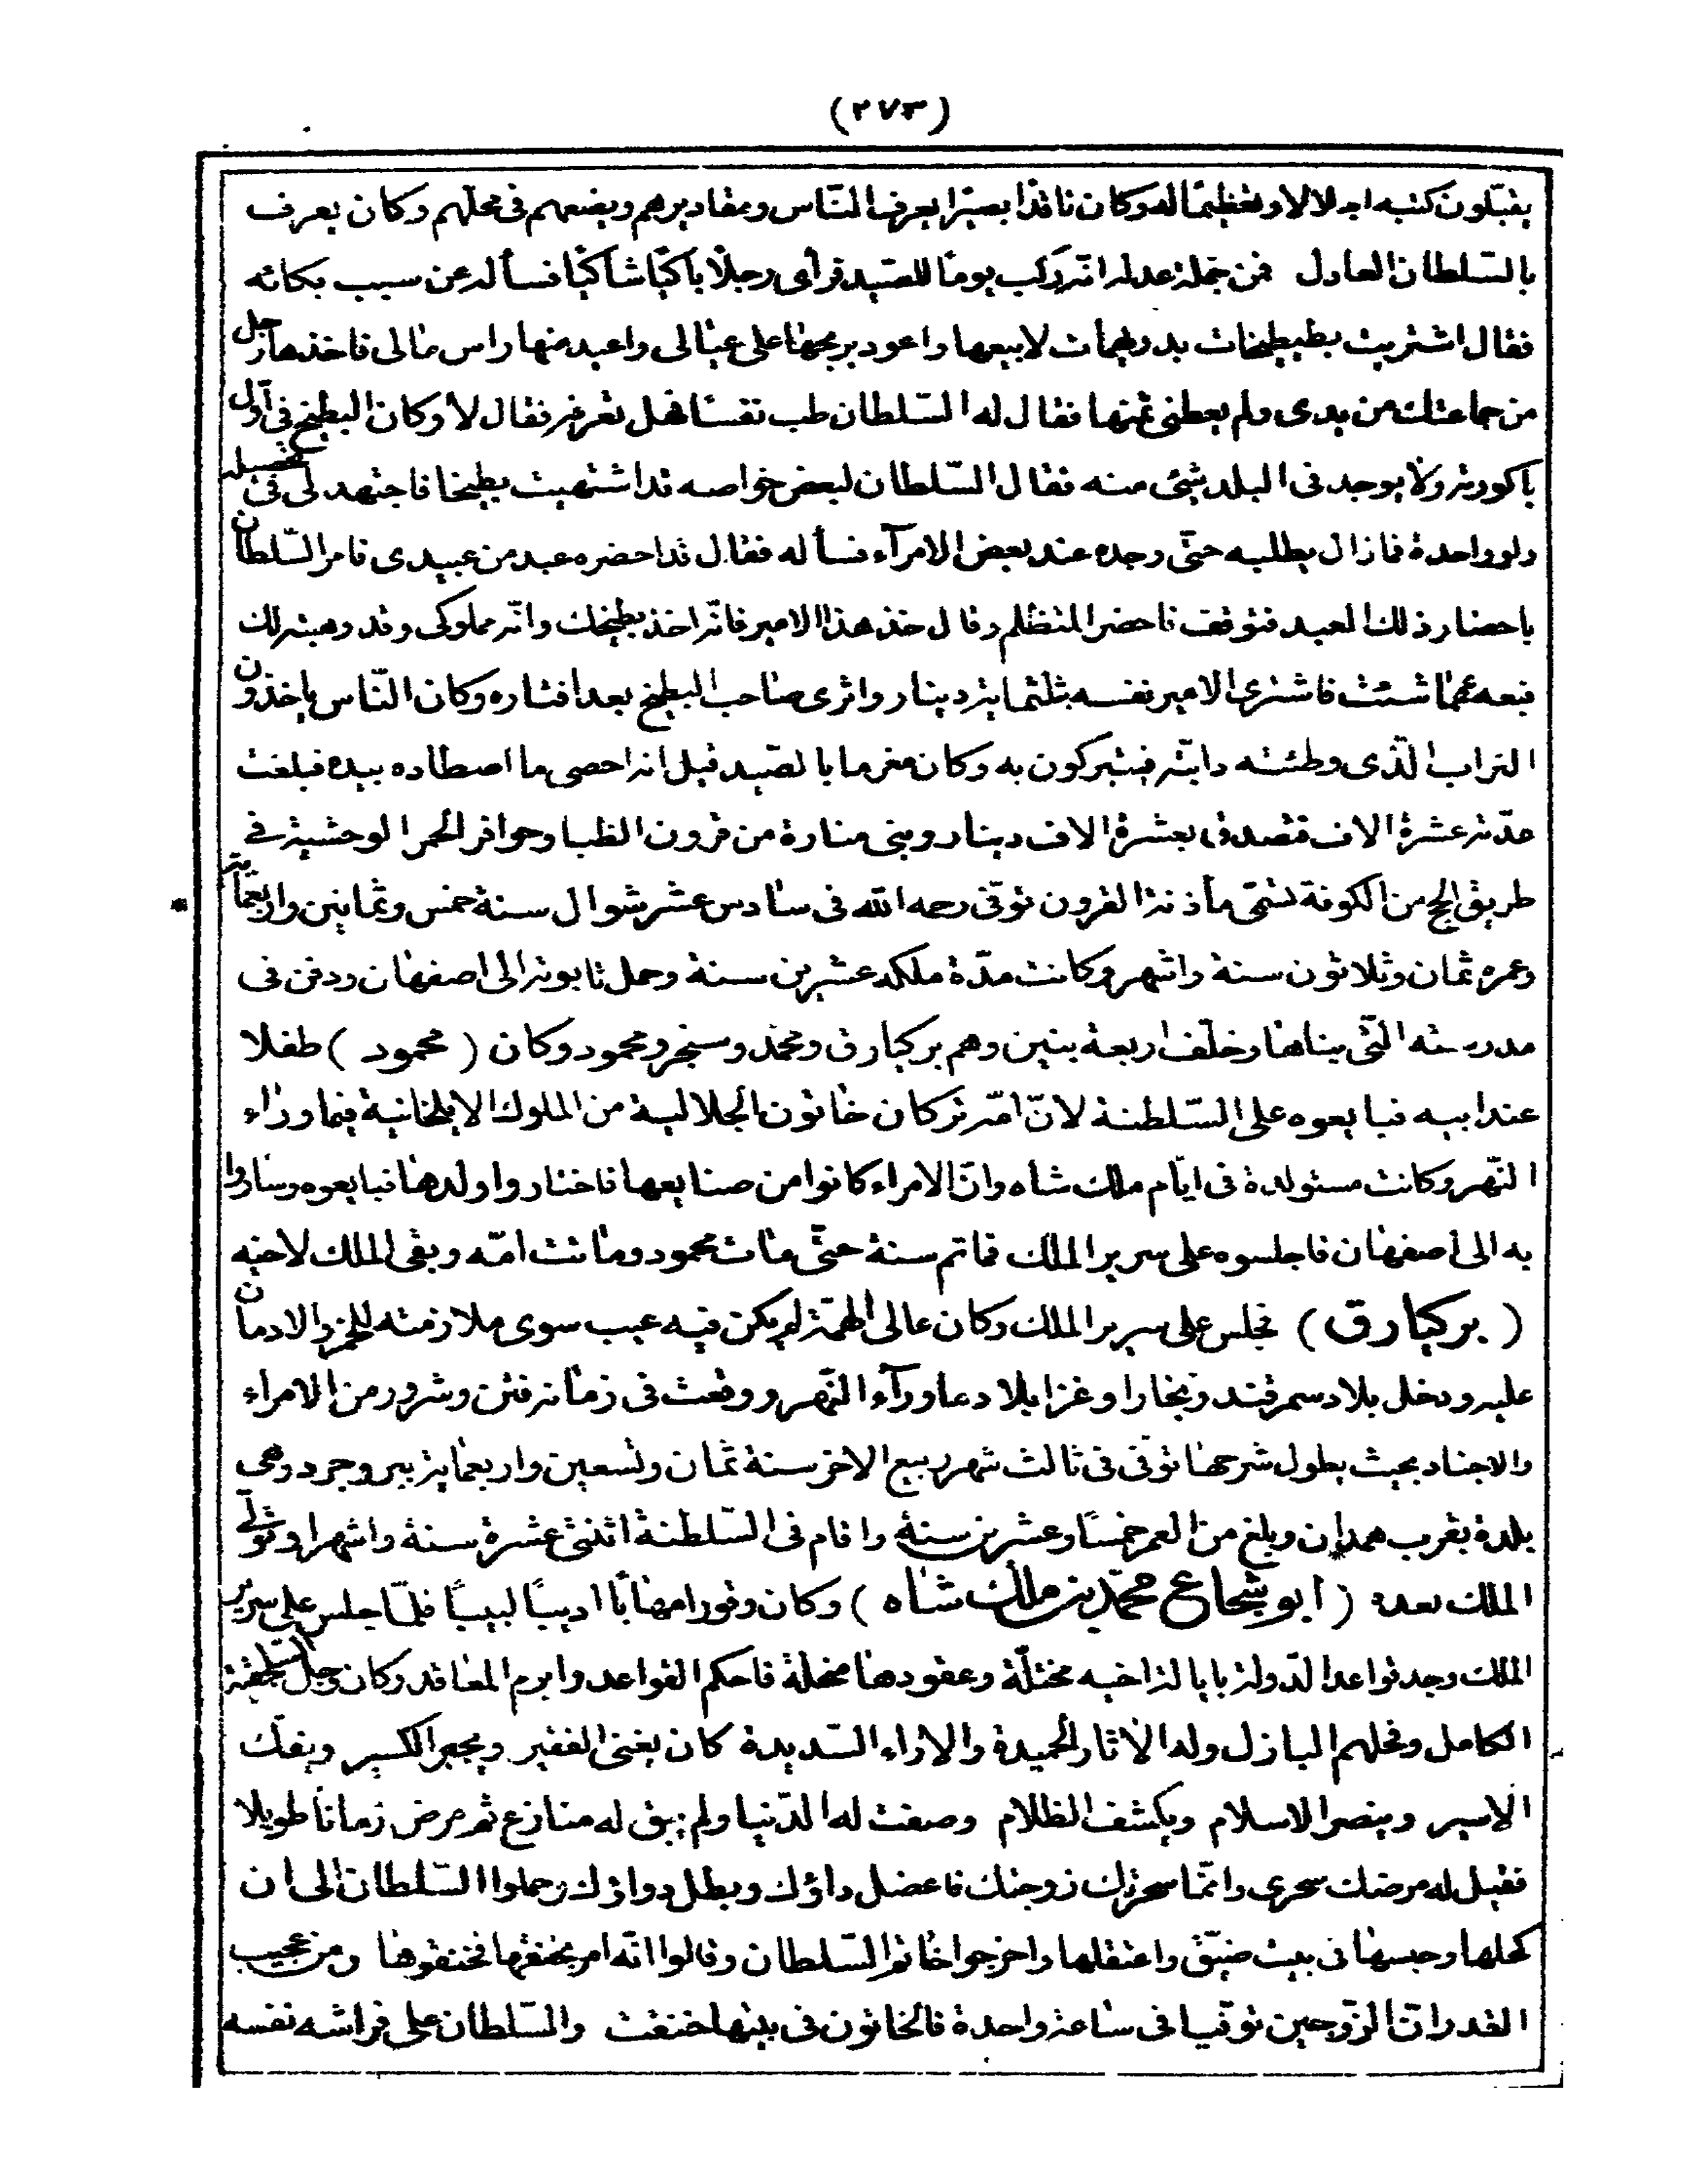 (٢٧٣)
يقبّلون كتبه اجلالا وتعظيما له وكان ناقدا بصيرا يعرف النّاس ومقاديرهم ويضعهم فى محلّهم وكان يعرف
بالسّلطان العادل فمن جملة عدله انّه ركب يوما للصّيد فرأى رجلا باكيا شاكيا فسأله عن سبب بكائه
فقال اشتريت بطيطيخات بدريهمات لابيعها واعود بربحها على عيالى واعيد منها راس مالى فاخذها رجل
من جماعتك من يدى ولم يعطنى ثمنها فقال له السّلطان طب نفسا فهل تعرفه فقال لا وكان البطيخ فى اوّل
باكورته ولا يوجد فى البلد شئ منه فقال السّلطان لبعض خواصه قد اشتهيت بطيخا فاجتهد لى فى تحصيله
ولو واحدة فما زال يطلبه حتّى وجده عند بعض الامرآء فسأله فقال قد احضره عبد من عبيدى فامر السّلطان
باحضار ذلك العبد فتوقف فاحضر المتظلم وقال خذ هذا الامير فانّه اخذ بطيخك وانّه مملوكى وقد وهبته لك
فبعه عمّا شئت فاشترى الامير نفسه بثلثماية دينار واثرى صاحب البطيخ بعد افتقاره وكان النّاس ياخذون
التراب الّذى وطئته دابّته فيتبركون به وكان مغرما بالصّيد قيل انه احصى ما اصطاده بيده فبلغت
عدّته عشرة الاف فتصدق بعشرة الاف دينار وبنى منارة من قرون الظبا وحوافر الحمر الوحشية فى
طريق الحج من الكوفة تسمّى مأذنة القرون توفّى رحمه الله فى سادس عشر شوال سنة خمس وثمانين واربعماية
وعمره ثمان وثلاثون سنة واشهر وكانت مدّة ملكه عشرين سنة وحمل تابوته الى اصفهان ودفن فى
مدرسته الّتى بناها وخلّف اربعة بنين وهم بركيارق ومحمّد وسنجر ومحمود وكان ( محمود ) طفلا
عند ابيه فبايعوه على السّلطنة لانّ امّه تركان خاتون الجلالية من الملوك الايلخانية فيما وراء
النّهر وكانت مستولدة فى ايّام ملك شاه وانّ الامراء كانوا من صنايعها فاختاروا ولدها فبايعوه وساروا
به الى اصفهان فاجلسوه على سرير الملك فما تم سنة حتّى مات محمود وماتت امّه وبقى الملك لاخيه
( بركيارق ) فجلس على سرير الملك وكان عالى الهمّة لم يكن فيه عيب سوى ملازمته للخمر والادمان
عليه ودخل بلاد سمرقند وبخارا وغزا بلاد ماورآء النّهر ووقعت فى زمانه فتن وشرور من الامراء
والاجناد بحيث يطول شرحها توفّى فى ثالث شهر ربيع الاخر سنة ثمان وتسعين واربعماية ببروجرد وهى
بلدة بقرب همدان وبلغ من العمر خمسا وعشرين سنة واقام فى السّلطنة اثنتى عشرة سنة واشهرا وتولّى
الملك بعده ( ابو شجاع محمّد بن ملك شاه ) وكان وقورا مهابا اديبا لبيبا فلمّا جلس على سرير
الملك وجد قواعد الدّولة بايالة اخيه مختلّة وعقودها منحلة فاحكم القواعد وابرم المعاقد وكان رجل السلجقية
الكامل وفحلهم البازل وله الاثار الحميدة والاراء السّديدة كان يغنى الفقير ويجبر الكسير ويفكّ
الاسير وينصر الاسلام ويكشف الظلام وصفت له الدّنيا ولم يبق له منازع ثم مرض زمانا طويلا
فقيل له مرضك سحرى وانّما سحرتك زوجتك فاعضل داؤك وبطل دواؤك وحملوا السّلطان الى ان
كحلها وحبسها فى بيت ضيّق واعتقلها واخرجوا خاتم السّلطان وقالوا انّه امر بخنقها فخنقوها ومن عجيب
القدر انّ الزّوجين توفّيا فى ساعة واحدة فالخاتون فى بيتها خنقت والسّلطان على فراشه نفسه